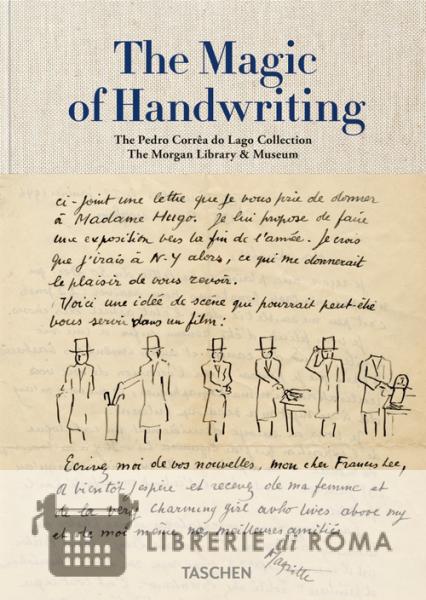 The Magic
of Handwriting
The Pedro Corrêa do Lago Collection
The Morgan Library & Museum
ci-joint une lettre que je vous prie de donner
à Madame Hugo. Je lui propose de faire
une exposition vers la fin de l'année. Je crois
que j'irais à N-Y alors, ce qui me donnerait
le plaisir de vous revoir.
Voici une idée de scène qui pourrait peut-être
vous servir dans un film:
Ecrivez moi de vos nouvelles, mon cher Francis Lee,
A bientôt j'espère et recevez de ma femme et
de la very charming girl who lives above my
et de moi même nos meilleures amitiés
Magritte
LIBRERIE di ROMA
TASCHEN